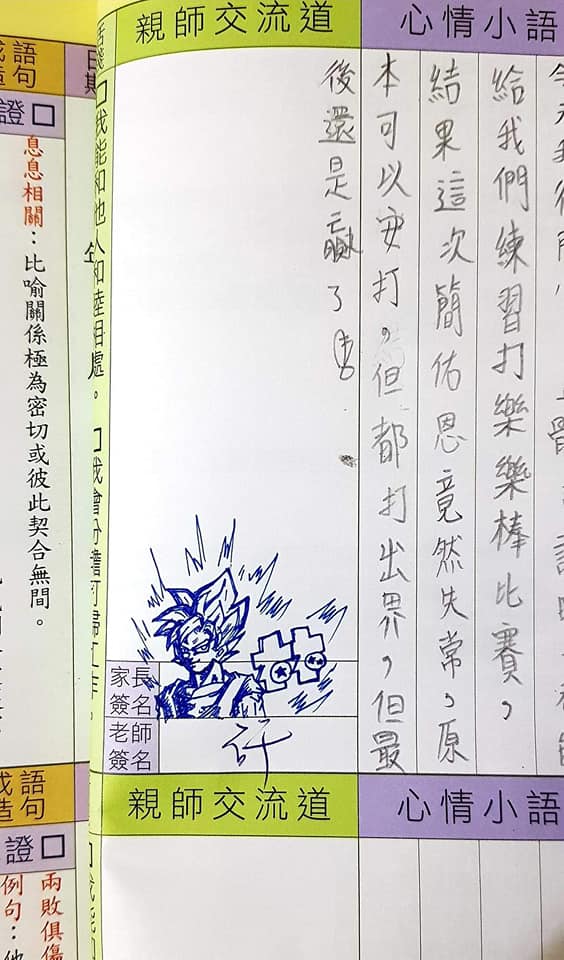 心情小語
給我們練習打樂樂棒比賽，
結果這次簡佑恩竟然失常，原
本可以安打，但都打出界，但最
後還是贏了
親師交流道
家長
簽名
老師
簽名
許
□我能和他人和睦相處。□我會分擔打掃工作。
日期
成語
造句
證□
息息相關：比喻關係極為密切或彼此契合無間。
心情小語
親師交流道
成語
造句
證□
兩敗俱傷
例句：他